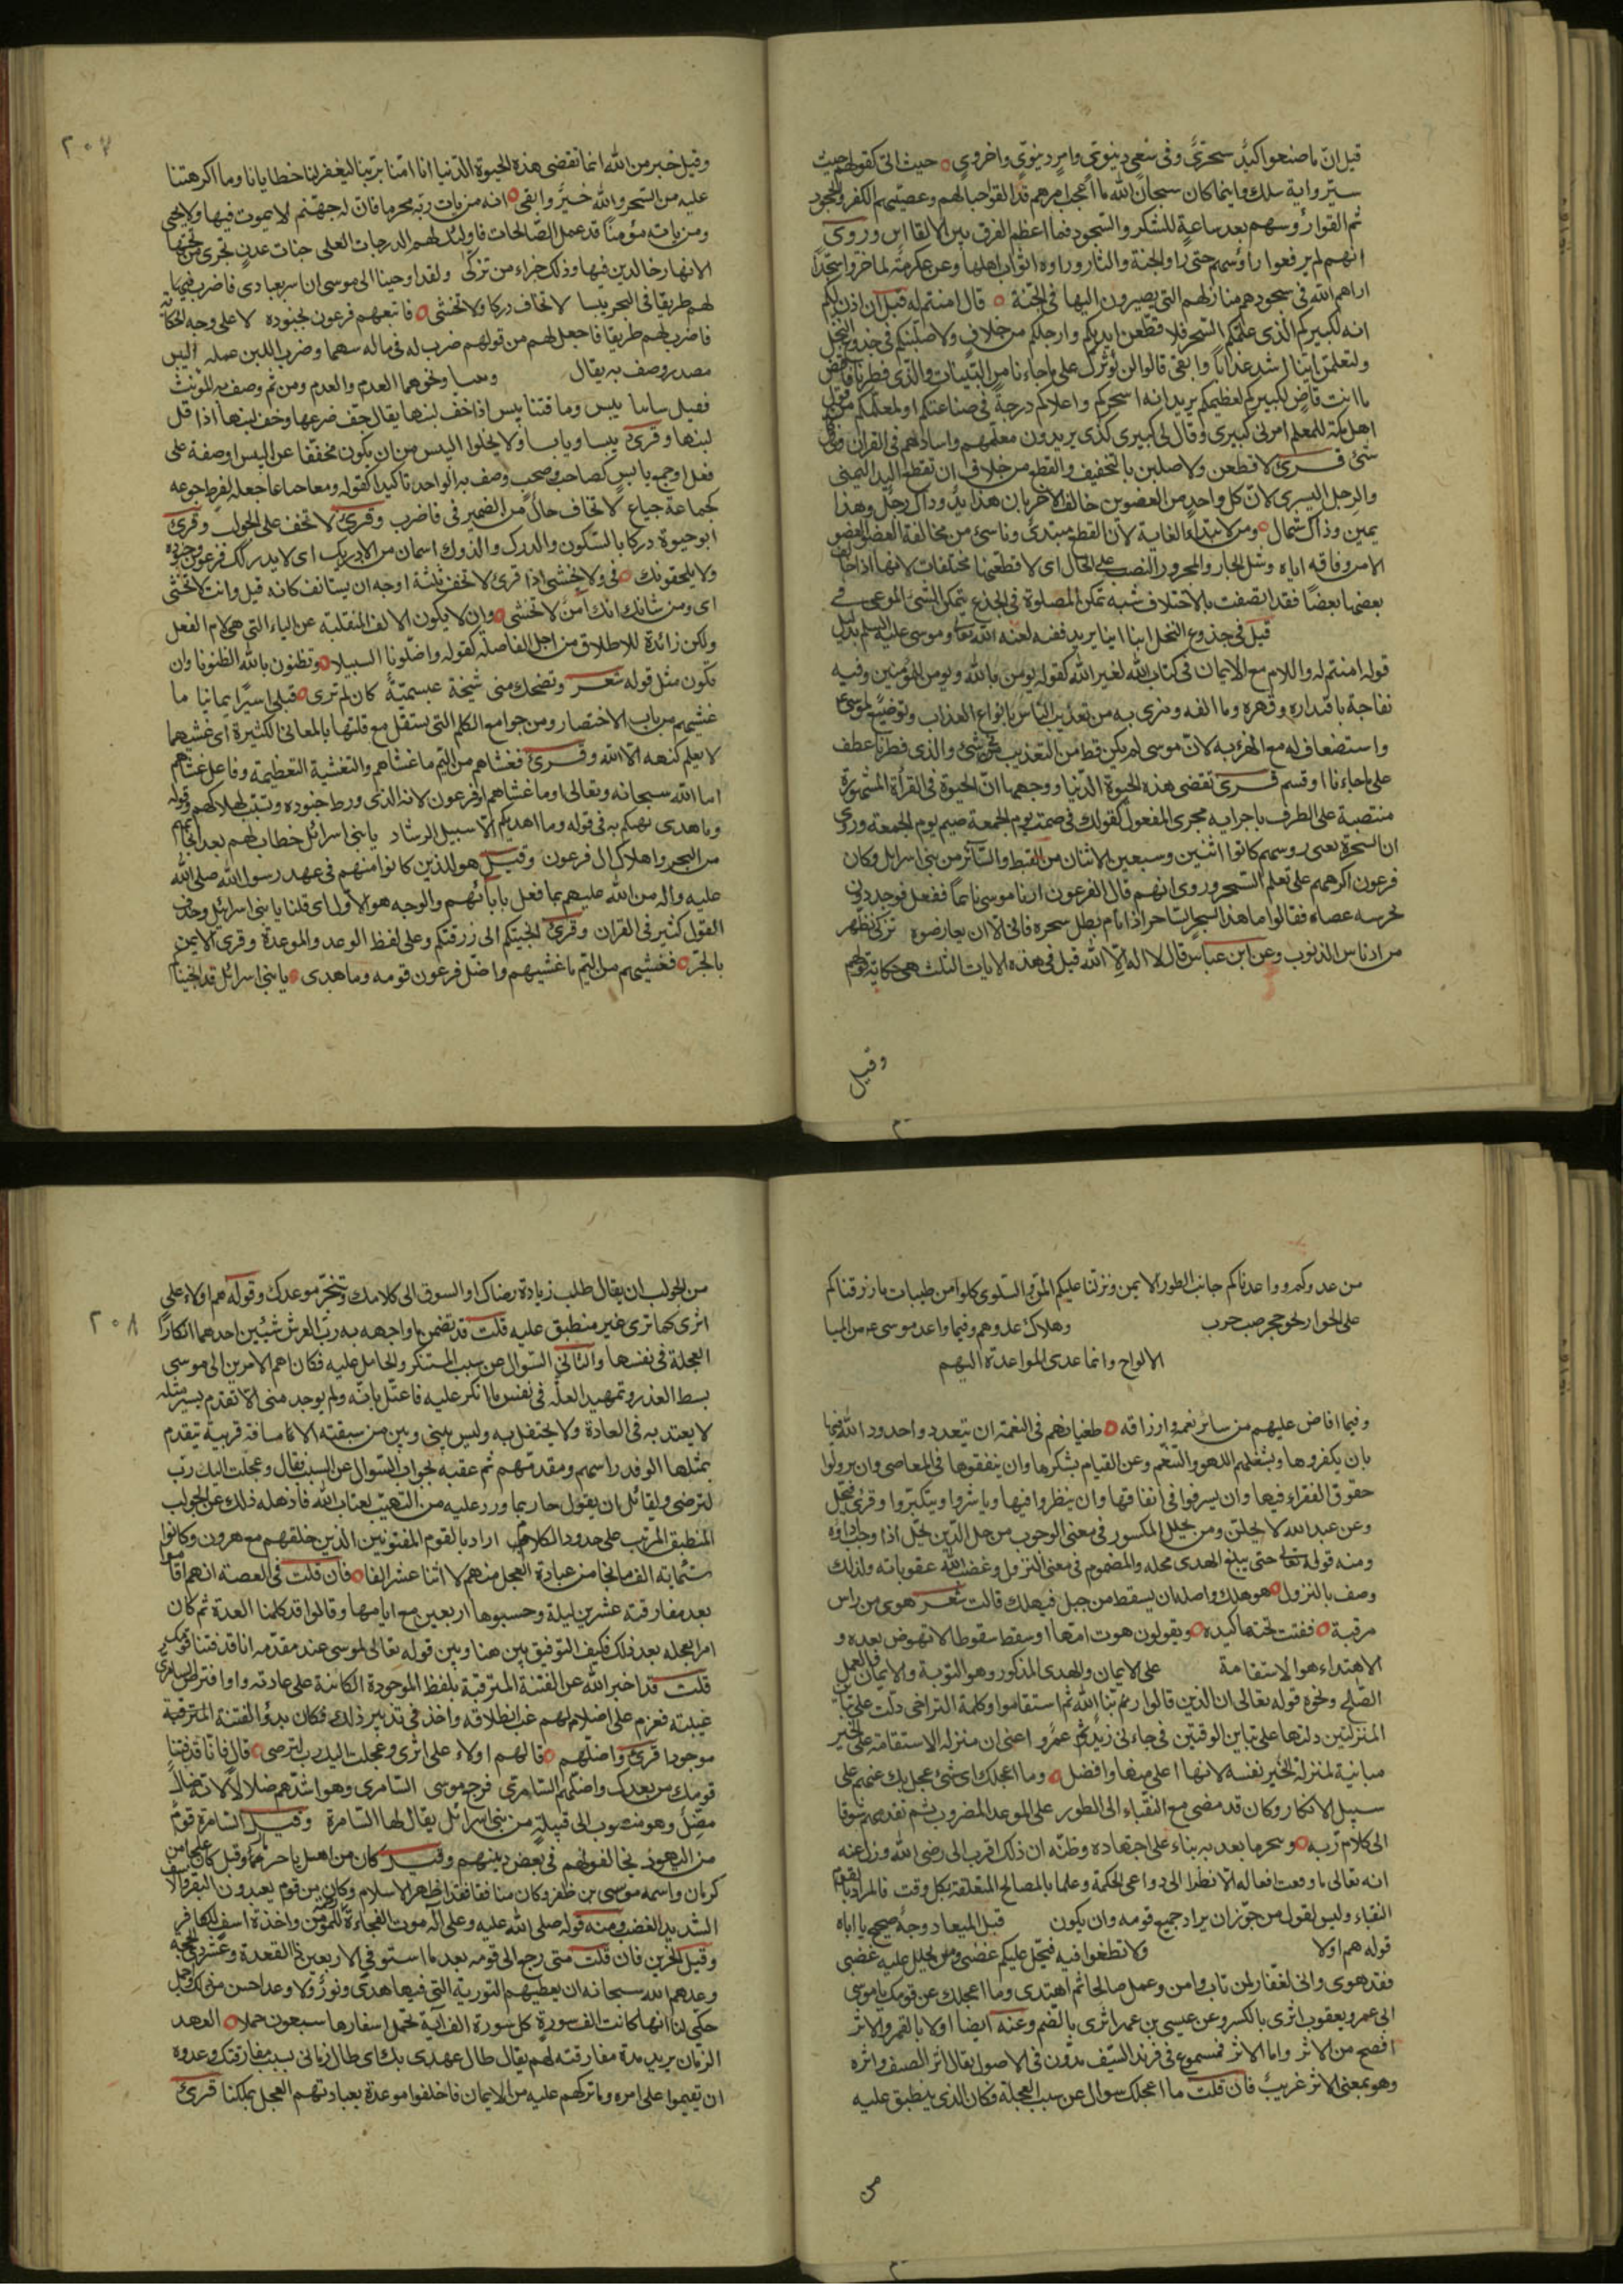 قيل ان ما صنعوا كيد سحرى وفى سعى دنيوى وامر دنيوى واخروى حيث اتى كقولهم حيث
سير واية سلك واينما كان سبحان الله ما اعجب امرهم قد القوا حبالهم وعصيهم للكفر والجحود
ثم القوا رؤسهم بعد ساعة للشكر والسجود فما اعظم الفرق بين الالقاءين وروى
انهم لم يرفعوا رؤسهم حتى راوا الجنة والنار وراوا ثواب اهلها وعن عكرمة لما خروا سجدا
اراهم الله فى سجودهم منازلهم التى يصيرون اليها فى الجنة قال امنتم له قبل ان اذن لكم
انه لكبيركم الذى علمكم السحر فلاقطعن ايديكم وارجلكم من خلاف ولاصلبنكم فى جذوع النخل
ولتعلمن اينا اشد عذابا وابقى قالوا لن نؤثرك على ما جاءنا من البينات والذى فطرنا فاقض
ما انت قاض لكبيركم لعظيمكم يريد انه اسحركم واعلاكم درجة فى صناعتكم او لمعلمكم من قول
اهل مكة للمعلم امرنى كبيرى وقال لى كبيرى كذى يريدون معلمهم واستاذهم فى القران وفى كل
شئ قرئ لاقطعن ولاصلبن بالتخفيف والقطع من خلاف ان تقطع اليد اليمنى
والرجل اليسرى لان كل واحد من العضوين خالف الاخر بان هذا يد وذاك رجل وهذا
يمين وذاك شمال ومن لابتداء الغاية لان القطع مبتدئ وناشئ من مخالفة العضو العضو
لا من وفاقه اياه ومثل الجار والمجرور النصب على الحال اى لاقطعنها مختلفات لانها اذا خالف
بعضها بعضا فقد اتصفت بالاختلاف شبه تمكن المصلوب فى الجذع بتمكن الشئ الموعى فى
قيل فى جذوع النخل اينا اينا يريد نفسه لعنه الله تعالى وموسى عليه السلم بدليل
قوله امنتم له واللام مع الايمان فى كتاب الله لغير الله كقوله يؤمن بالله ويؤمن للمؤمنين وفيه
نفاجة باقتداره وقهره وما الفه وضرى به من تعذيب الناس بانواع العذاب وتوضيع لموسى
واستضعاف له مع الهزء به لان موسى لم يكن قط من التعذيب فى شئ والذى فطرنا عطف
على ما جاءنا او قسم قرئ تقضى هذه الحيوة الدنيا ووجهها ان الحيوة فى القراة المشهورة
منتصبة على الظرف باجرايه مجرى المفعول كقولك فى صمت يوم الجمعة صيم يوم الجمعة وروى
ان السحرة يعنى رؤسهم كانوا اثنين وسبعين الاثنان من القبط والسائر من بنى اسرائل وكان
فرعون اكرههم على تعلم السحر وروى انهم قالوا لفرعون ارنا موسى نائما ففعل فوجدوه
تحرسه عصاه فقالوا ما هذا السحر الساحر اذا نام بطل سحره فابى الا ان يعارضوه تزكى تطهر
من ادناس الذنوب وعن ابن عباس قال لا اله الا الله قيل فى هذه الايات الثلث هى حكاية قولهم
وقيل
٢٠٧
وقيل خبر من الله انما تقضى هذه الحيوة الدنيا انا امنا بربنا ليغفر لنا خطايانا وما اكرهتنا
عليه من السحر والله خير وابقى انه من يات ربه مجرما فان له جهنم لا يموت فيها ولا يحيى
ومن ياته مؤمنا قد عمل الصالحات فاولئك لهم الدرجات العلى جنات عدن تجرى من تحتها
الانهار خالدين فيها وذلك جزاء من تزكى ولقد اوحينا الى موسى ان اسر بعبادى فاضرب
لهم طريقا فى البحر يبسا لا تخاف دركا ولا تخشى فاتبعهم فرعون بجنوده لا على وجه الحكاية
فاضرب لهم طريقا فاجعل لهم من قولهم ضرب له فى ماله سهما وضرب اللبن عمله اليبس
مصدر وصف به يقال ونحوهما العدم والعدم ومن ثم وصف به المؤنث
لبنها وقرئ يبسا ويابسا ولا يخلوا اليبس من ان يكون مخففا عن اليبس او صفة على
فعل او جمع يابس كصاحب وصحب وصف به الواحد تاكيدا كقوله ومعا جياعا جعله لفرط جوعه
كجماعة جياع لا تخاف حال من الضمير فى فاضرب وقرئ لا تخف على الجواب وقرئ
ابو حيوة دركا بالسكون والدرك والدرك اسمان من الادراك اى لا يدركك فرعون وجنوده
ولا يلحقونك فى ولا تخشى اذا قرئ لا تخف ثلثة اوجه ان يستانف كانه قيل وانت لا تخشى
اى ومن شانك انك امن لا تخشى وان لا يكون الالف المنقلبة عن الياء التى هى لام الفعل
ولكن زائدة للاطلاق من اجل الفاصلة كقوله واضلونا السبيلا وتظنون بالله الظنونا وان
يكون مثل قوله شعر وتضحك منى شيخة عبشمية كان لم ترى قبلى اسيرا يمانيا ما
غشيهم من باب الاختصار ومن جوامع الكلم التى تستقل مع قلتها بالمعانى الكثيرة اى غشيهم ما
لا يعلم كنهه الا الله وقرئ فغشاهم من اليم ما غشاهم والتغشية التغطية وفاعل غشاهم
اما الله سبحانه وتعالى او ما غشاهم او فرعون لانه الذى ورط جنوده وتسبب لهلاكهم وقوله
وما هدى تهكم به فى قوله وما اهديكم الا سبيل الرشاد يا بنى اسرائل خطاب لهم بعد انجائهم
من البحر واهلاك ال فرعون وقيل هو للذين كانوا منهم فى عهد رسول الله صلى الله
عليه واله من الله عليهم بما فعل بابائهم والوجه هو الاول اى قلنا يا بنى اسرائل وحذف
القول كثير فى القران وقرئ انجيتكم الى رزقتكم وعلى لفظ الوعد والمواعدة وقرئ الايمن
بالجر فغشيهم من اليم ما غشيهم واضل فرعون قومه وما هدى يا بنى اسرائل قد انجيناكم
من عدوكم وواعدناكم جانب الطور الايمن ونزلنا عليكم المن والسلوى كلوا من طيبات ما رزقناكم
على الجوار نحو جحر ضب خرب وهلاك عدوهم وفيما واعد موسى
الالواح وانما عدى المواعدة اليهم
وفيما افاض عليهم من سائر نعمه وارزاقه طغيانهم فى النعمة ان يتعدوا حدود الله فيها
بان يكفروها ويشغلهم اللهو والتنعم وعن القيام بشكرها وان ينفقوها فى المعاصى وان يزولوا
حقوق الفقراء فيها وان يسرفوا فى انفاقها وان ينظروا فيها وياشروا ويتكبروا وقرئ فيحل
وعن عبد الله لا يحلن ومن يحلل المكسور فى معنى الوجوب من حل الدين يحل اذا وجب اداؤه
ومنه قوله تعالى حتى يبلغ الهدى محله والمضموم فى معنى النزول وغضب الله عقوباته ولذلك
وصف بالنزول هو هلك واصله ان يسقط من جبل فيهلك قالت شعر هوى من راس
مرقبة ففتت تحتها كبده ويقولون هوت امه او سقط سقوطا لا نهوض بعده و
الاهتداء هو الاستقامة على الايمان والهدى المذكور وهو التوبة والايمان والعمل
الصالح ونحوه قوله تعالى ان الذين قالوا ربنا الله ثم استقاموا وكلمة التراخى دلت على تباين
المنزلتين دلتها على تباين الوقتين فى جاءنى زيد ثم عمرو اعنى ان منزلة الاستقامة على الخير
مباينة لمنزلة الخير نفسه لانها اعلى منها وافضل وما اعجلك اى شئ عجل بك عنهم على
سبيل الانكار وكان قد مضى مع النقباء الى الطور على الموعد المضروب ثم تقدمهم شوقا
الى كلام ربه وبحرما بعد به بناء على اجتهاده وظنه ان ذلك اقرب الى رضى الله وزل عنه
انه تعالى ما وقت افعاله الا نظرا الى دواعى الحكمة وعلما بالمصالح المتعلقة بكل وقت فالمراد بالقوم
النقباء وليس لقول من جوز ان يراد جميع قومه وان يكون قبل الميعاد وجه صحيح ياباه
قوله هم اولا ولا تطغوا فيه فيحل عليكم غضبى ومن يحلل عليه غضبى
فقد هوى وانى لغفار لمن تاب وامن وعمل صالحا ثم اهتدى وما اعجلك عن قومك يا موسى
ابى عمرو يعقوب اثرى بالكسر وعن عيسى بن عمر اثرى بالضم وعنه ايضا اولا بالقصر والاثر
افصح من الاثر واما الاثر فمسموع فى فرند السيف مدون فى الاصول يقال اثر السيف واثره
وهو بمعنى الاثر غريب فان قلت ما اعجلك سوال عن سبب العجلة فكان الذى ينطبق عليه
من
٢٠٨
من الجواب ان يقال طلب زيادة رضاك او الشوق الى كلامك وتنجز موعدك وقوله هم اولاء على
اثرى كما ترى غير منطبق عليه قلت قد تضمن ما واجهه به رب العرش شيئين احدهما انكار
العجلة فى نفسها والثانى السؤال عن سبب المستنكر والحامل عليه فكان اهم الامرين الى موسى
بسط العذر وتمهيد العلة فى نفس ما انكر عليه فاعتل بانه ولم يوجد منى الا تقدم يسير مثله
لا يعتد به فى العادة ولا يحتفل به وليس بينى وبين من سبقته الا مسافة قريبة يتقدم
بمثلها الوفد راسهم ومقدمهم ثم عقبه بجواب السؤال عن السبب فقال وعجلت اليك رب
لترضى ولقائل ان يقول حار بما ورد عليه من التهيب لعتاب الله فاذهله ذلك عن الجواب
المنطبق المرتب على حدود الكلام اراد بالقوم المفتونين الذين خلفهم مع هرون وكانوا
ستمائة الف ما نجا من عبادة العجل منهم الا اثنا عشر الفا فان قلت فى القصة انهم اقاموا
بعد مفارقته عشرين ليلة وحسبوها اربعين مع ايامها وقالوا قد كملنا العدة ثم كان
امر العجل بعد ذلك فكيف التوفيق بين هذا وبين قوله تعالى لموسى عند مقدمه انا قد فتنا قومك
قلت قد اخبر الله عن الفتنة المترقبة بلفظ الموجودة الكائنة على عادته او افترص السامرى
غيبته فعزم على اضلالهم غب انطلاقه واخذ فى تدبير ذلك فكان بدؤ الفتنة المترقبة
موجودا قرئ واضلهم قال هم اولاء على اثرى وعجلت اليك رب لترضى قال فانا قد فتنا
قومك من بعدك واضلهم السامرى فرجع موسى السامرى وهو اشدهم ضلالا لانه ضال
مضل وهو منصوب الى قبيلة من بنى اسرائل يقال لها السامرة وقيل السامرة قوم
من اليهود يخالفونهم فى بعض دينهم وقيل كان من اهل باجرما وقيل كان علجا من
كرمان واسمه موسى بن ظفر وكان منافقا قد اظهر الاسلام وكان من قوم يعبدون البقر والاسف
الشديد الغضب ومنه قوله صلى الله عليه وعلى اله موت الفجاءة رحمة للمؤمن واخذة اسف للكافر
وقيل الحزين فان قلت متى رجع الى قومه بعد ما استوفى الاربعين ذا القعدة وعشر ذى الحجة
وعدهم الله سبحانه ان يعطيهم التورية التى فيها هدى ونور ولا وعد احسن من ذلك واجمل
حكى لنا انها كانت الف سورة كل سورة الف اية تحمل اسفارها سبعون جملا العهد
الزمان يريد مدة مفارقته لهم يقال طال عهدى بك اى طال زمانى بسبب مفارقتك وعدوه
ان يقيموا على امره وما تركهم عليه من الايمان فاخلفوا موعده بعبادتهم العجل بملكنا قرئ